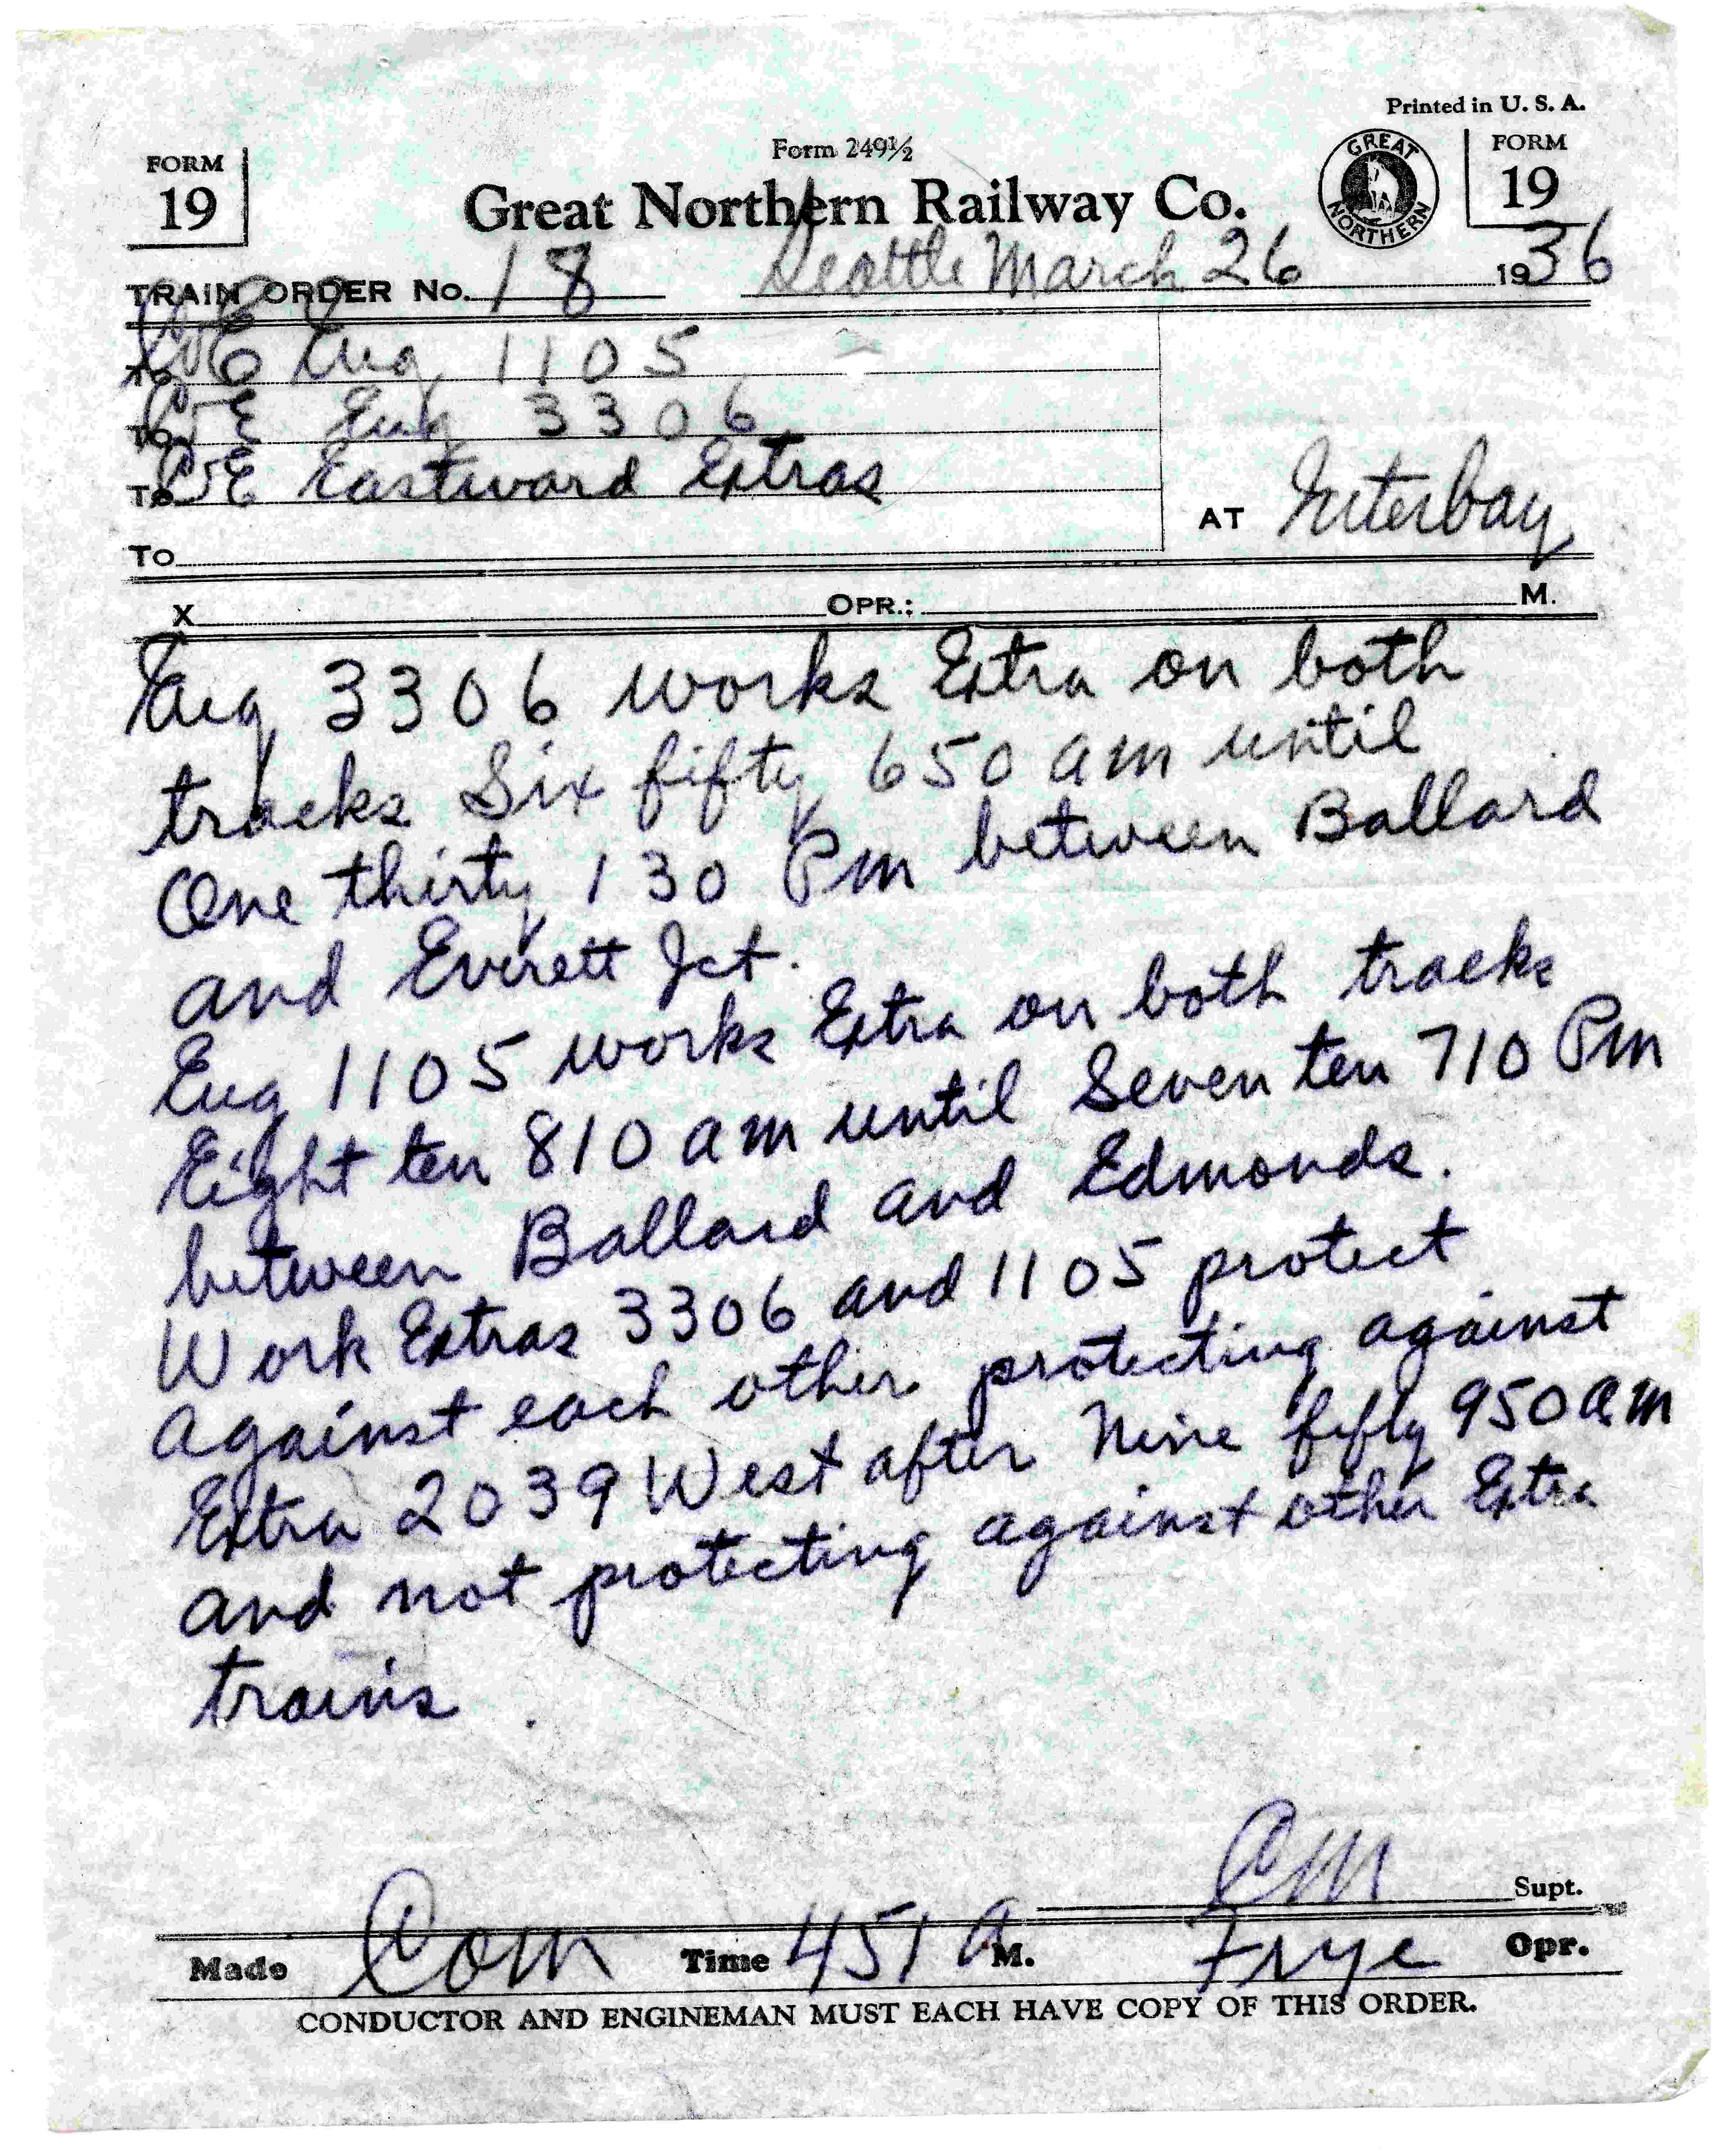 Printed in U. S. A.
FORM
19
Form 249½
GREAT
NORTHERN
FORM
19
Great Northern Railway Co.
TRAIN ORDER No. 18 Seattle March 26 1936
To C&E Eng 1105
To C&E Eng 3306
To C&E Eastward Extras
AT Interbay
To
X OPR.: M.
Eng 3306 works Extra on both
tracks Six fifty 650 am until
One thirty 130 Pm between Ballard
and Everett Jct.
Eng 1105 works Extra on both tracks
Eight ten 810 am until Seven ten 710 Pm
between Ballard and Edmonds.
Work Extras 3306 and 1105 protect
against each other protecting against
Extra 2039 West after Nine fifty 950 am
and not protecting against other Extra
trains.
CM Supt.
Made Com Time 451 A M. Frye Opr.
CONDUCTOR AND ENGINEMAN MUST EACH HAVE COPY OF THIS ORDER.